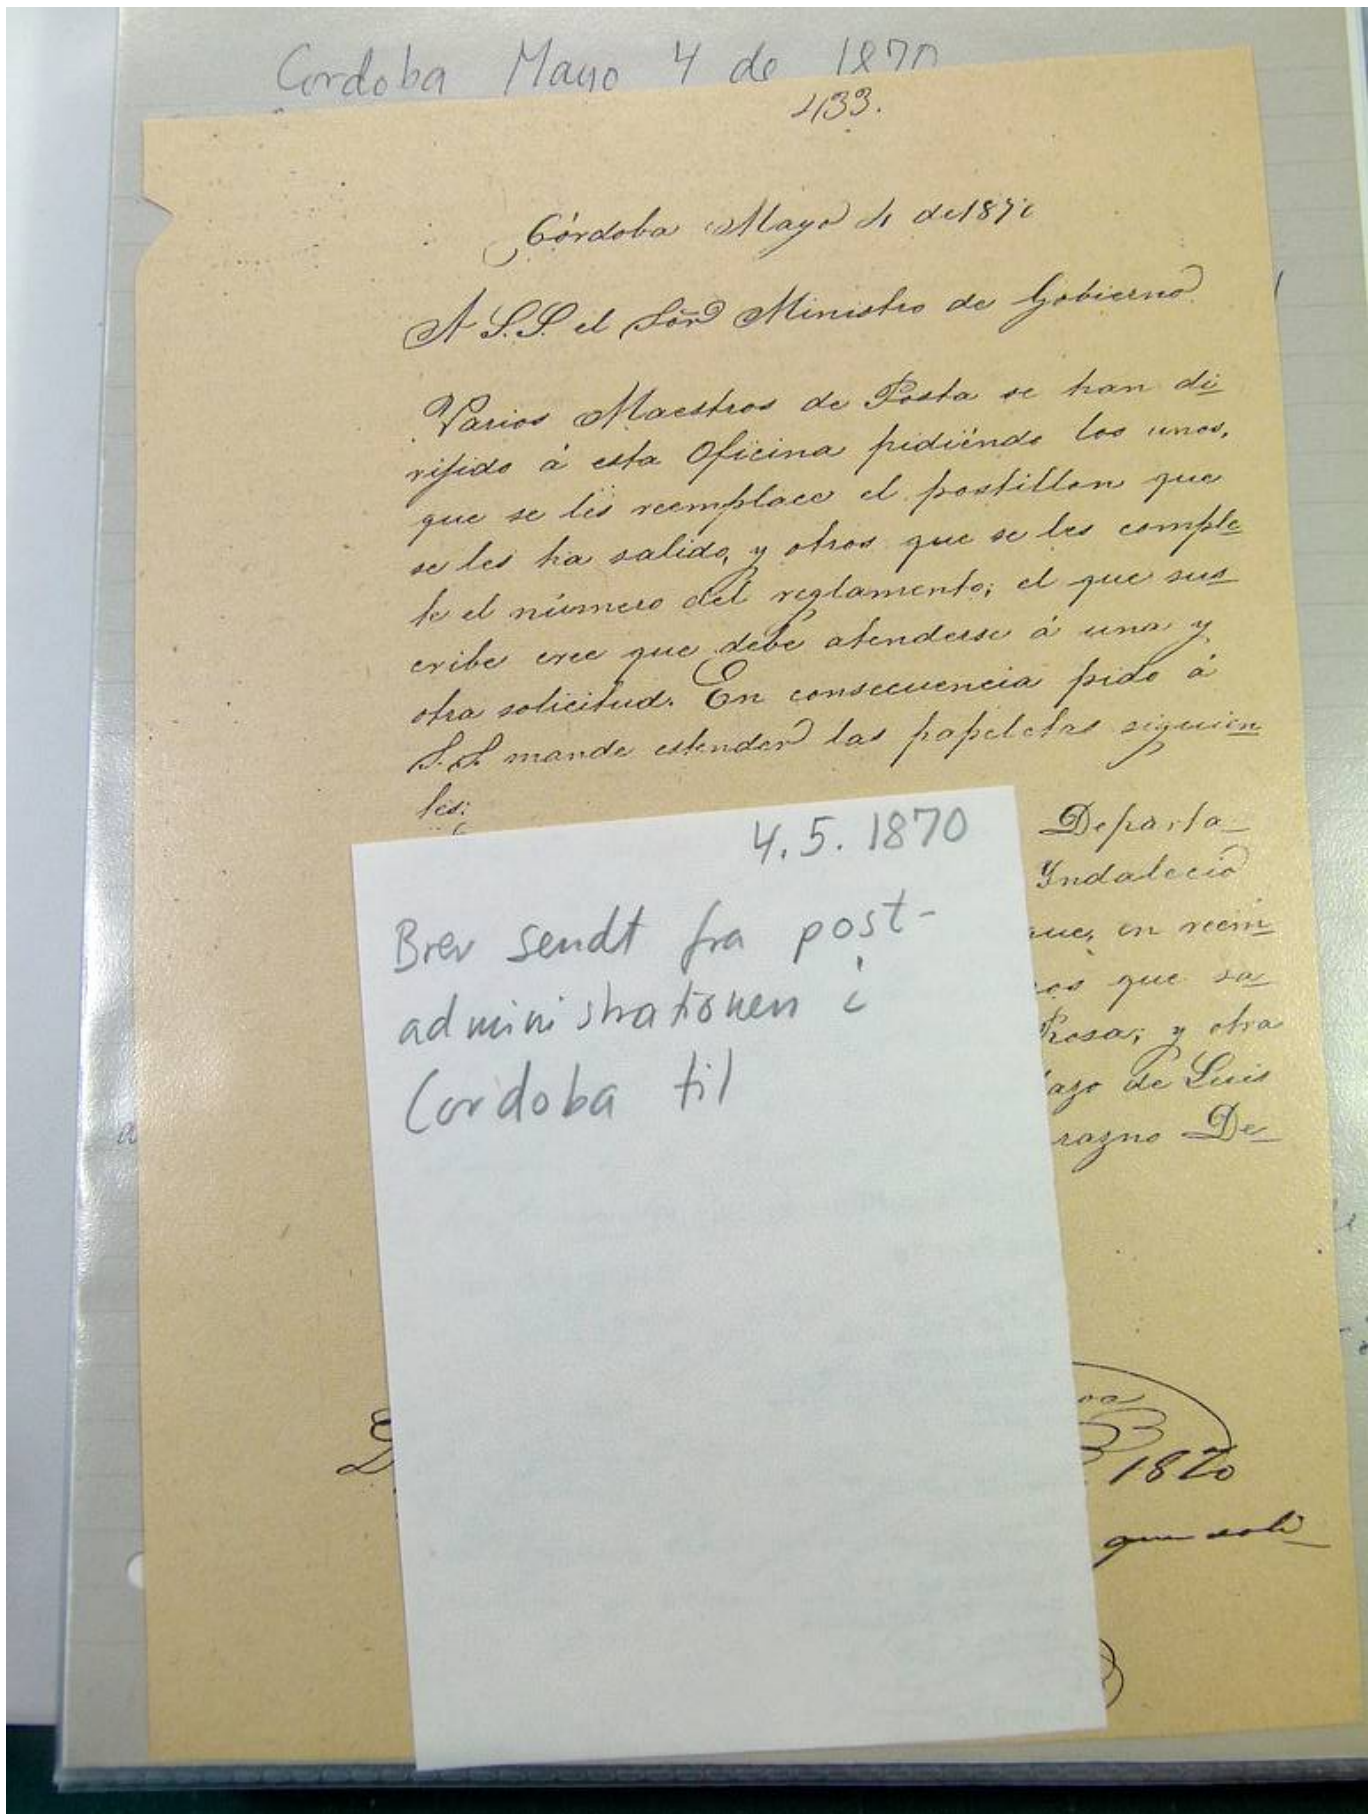 Cordoba Mayo 4 de 1870
433.
Córdoba Mayo 4 de 1870
A S.S. el Sõr Ministro de Gobierno
Varios Maestros de Posta se han di
rijido á esta Oficina pidiendo los unos,
que se les reemplace el postillon que
se les ha salido, y otros que se les comple
te el número del reglamento; el que sus
cribe cree que debe atenderse á una y
otra solicitud. En consecuencia pido á
S.S. mande estender las papeletas siguien
tes:
Departa
Yndalecio
que, en reem
os que sa
Rosa; y otra
lazo de Luis
De
4.5.1870
Brev sendt fra post-
administrationen i
Cordoba til
1870
que soli